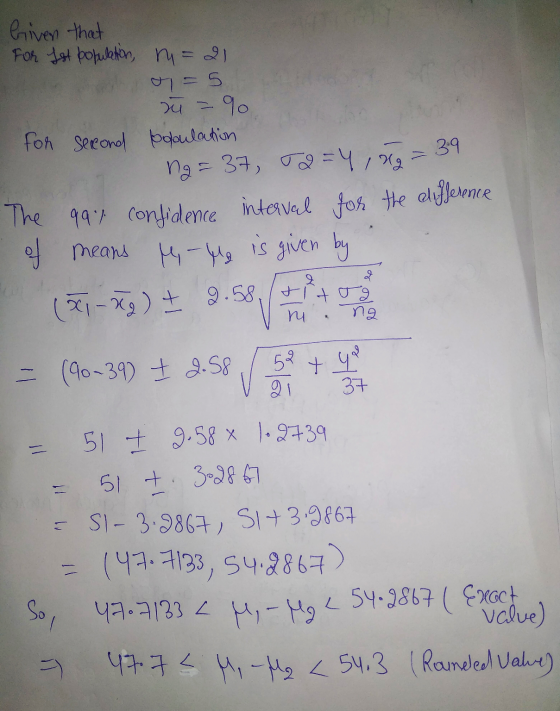 Given that
For 1st population, n₁ = 21
σ₁ = 5
x̄₁ = 90
For second population
n₂ = 37, σ₂ = 4, x̄₂ = 39
The 99% confidence interval for the difference
of means μ₁-μ₂ is given by
(x̄₁-x̄₂) ± 2.58 √(σ₁²/n₁ + σ₂²/n₂)
= (90-39) ± 2.58 √(5²/21 + 4²/37)
= 51 ± 2.58 × 1.2739
= 51 ± 3.2867
= 51-3.2867, 51+3.2867
= (47.7133, 54.2867)
So, 47.7133 < μ₁-μ₂ < 54.2867 (Exact value)
⇒ 47.7 < μ₁-μ₂ < 54.3 (Rounded Value)